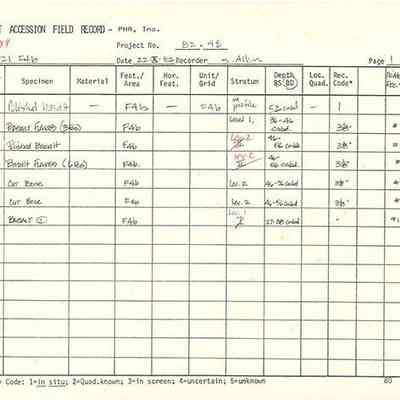 T ACCESSION FIELD RECORD - PHR, Inc.
Project No. 82-45
Date 22-X-82 Recorder S. Allen Page 1
Specimen Material Feat./Area Hor. Feat. Unit/Grid Stratum Depth BS/BD Loc. Quad. Rec. Code*
Polished basalt — FAb — FAb in profile 53 cmbd — 1
Basalt Flakes FAb Level 1, 36-46 cmbd 3⅛"
Polished Basalt FAb Lev. 2 46-56 cmbd 3⅛"
Basalt Flakes FAb 46-56 cmbd 3⅛"
Cut Bone FAb Lev. 2 46-56 cmbd 3⅛"
Cut Bone FAb Lev. 2 46-56 cmbd 3⅛"
Basalt FAb Lev. 1 cmbd 3⅛"
Code: 1=in situ; 2=Quad.known; 3=in screen; 4=uncertain; 5=unknown 80